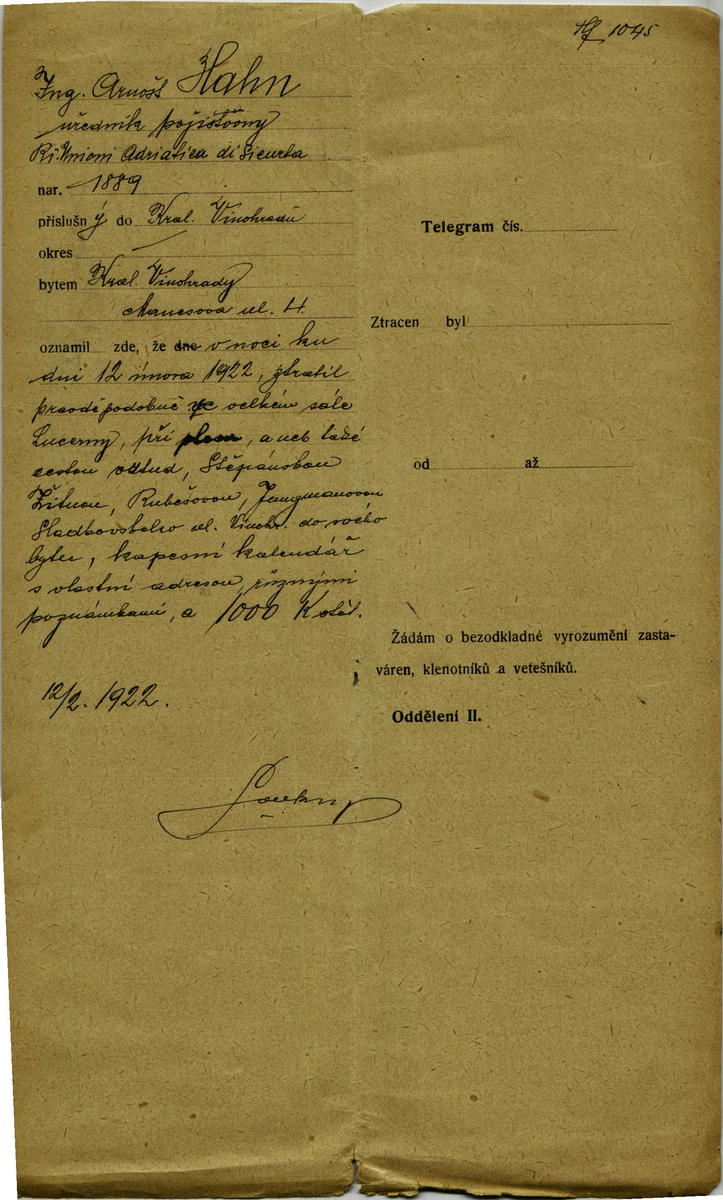 1045
Ing. Arnošt Hahn
úředník pojišťovny
Ri. Unioni Adriatica di Sicurta
nar. 1889
příslušný do Král. Vinohradů
okres —
bytem Král. Vinohrady
Manesova ul. 4.
oznámil zde, že dne v noci ku
dni 12 února 1922, ztratil
pravděpodobně ve velkém sále
Lucerny, při plesu, aneb také
cestou odtud, Štěpánskou
Žitnou, Rubešovou, Jungmanovou
Sladkovského ul. Vinohr. do svého
bytu, kapesní kalendář
s vlastní adresou, různými
poznámkami, a 1000 Kčsl.
12/2. 1922.
Telegram čís.
Ztracen byl
od až
Žádám o bezodkladné vyrozumění zasta-
váren, klenotníků a vetešníků.
Oddělení II.